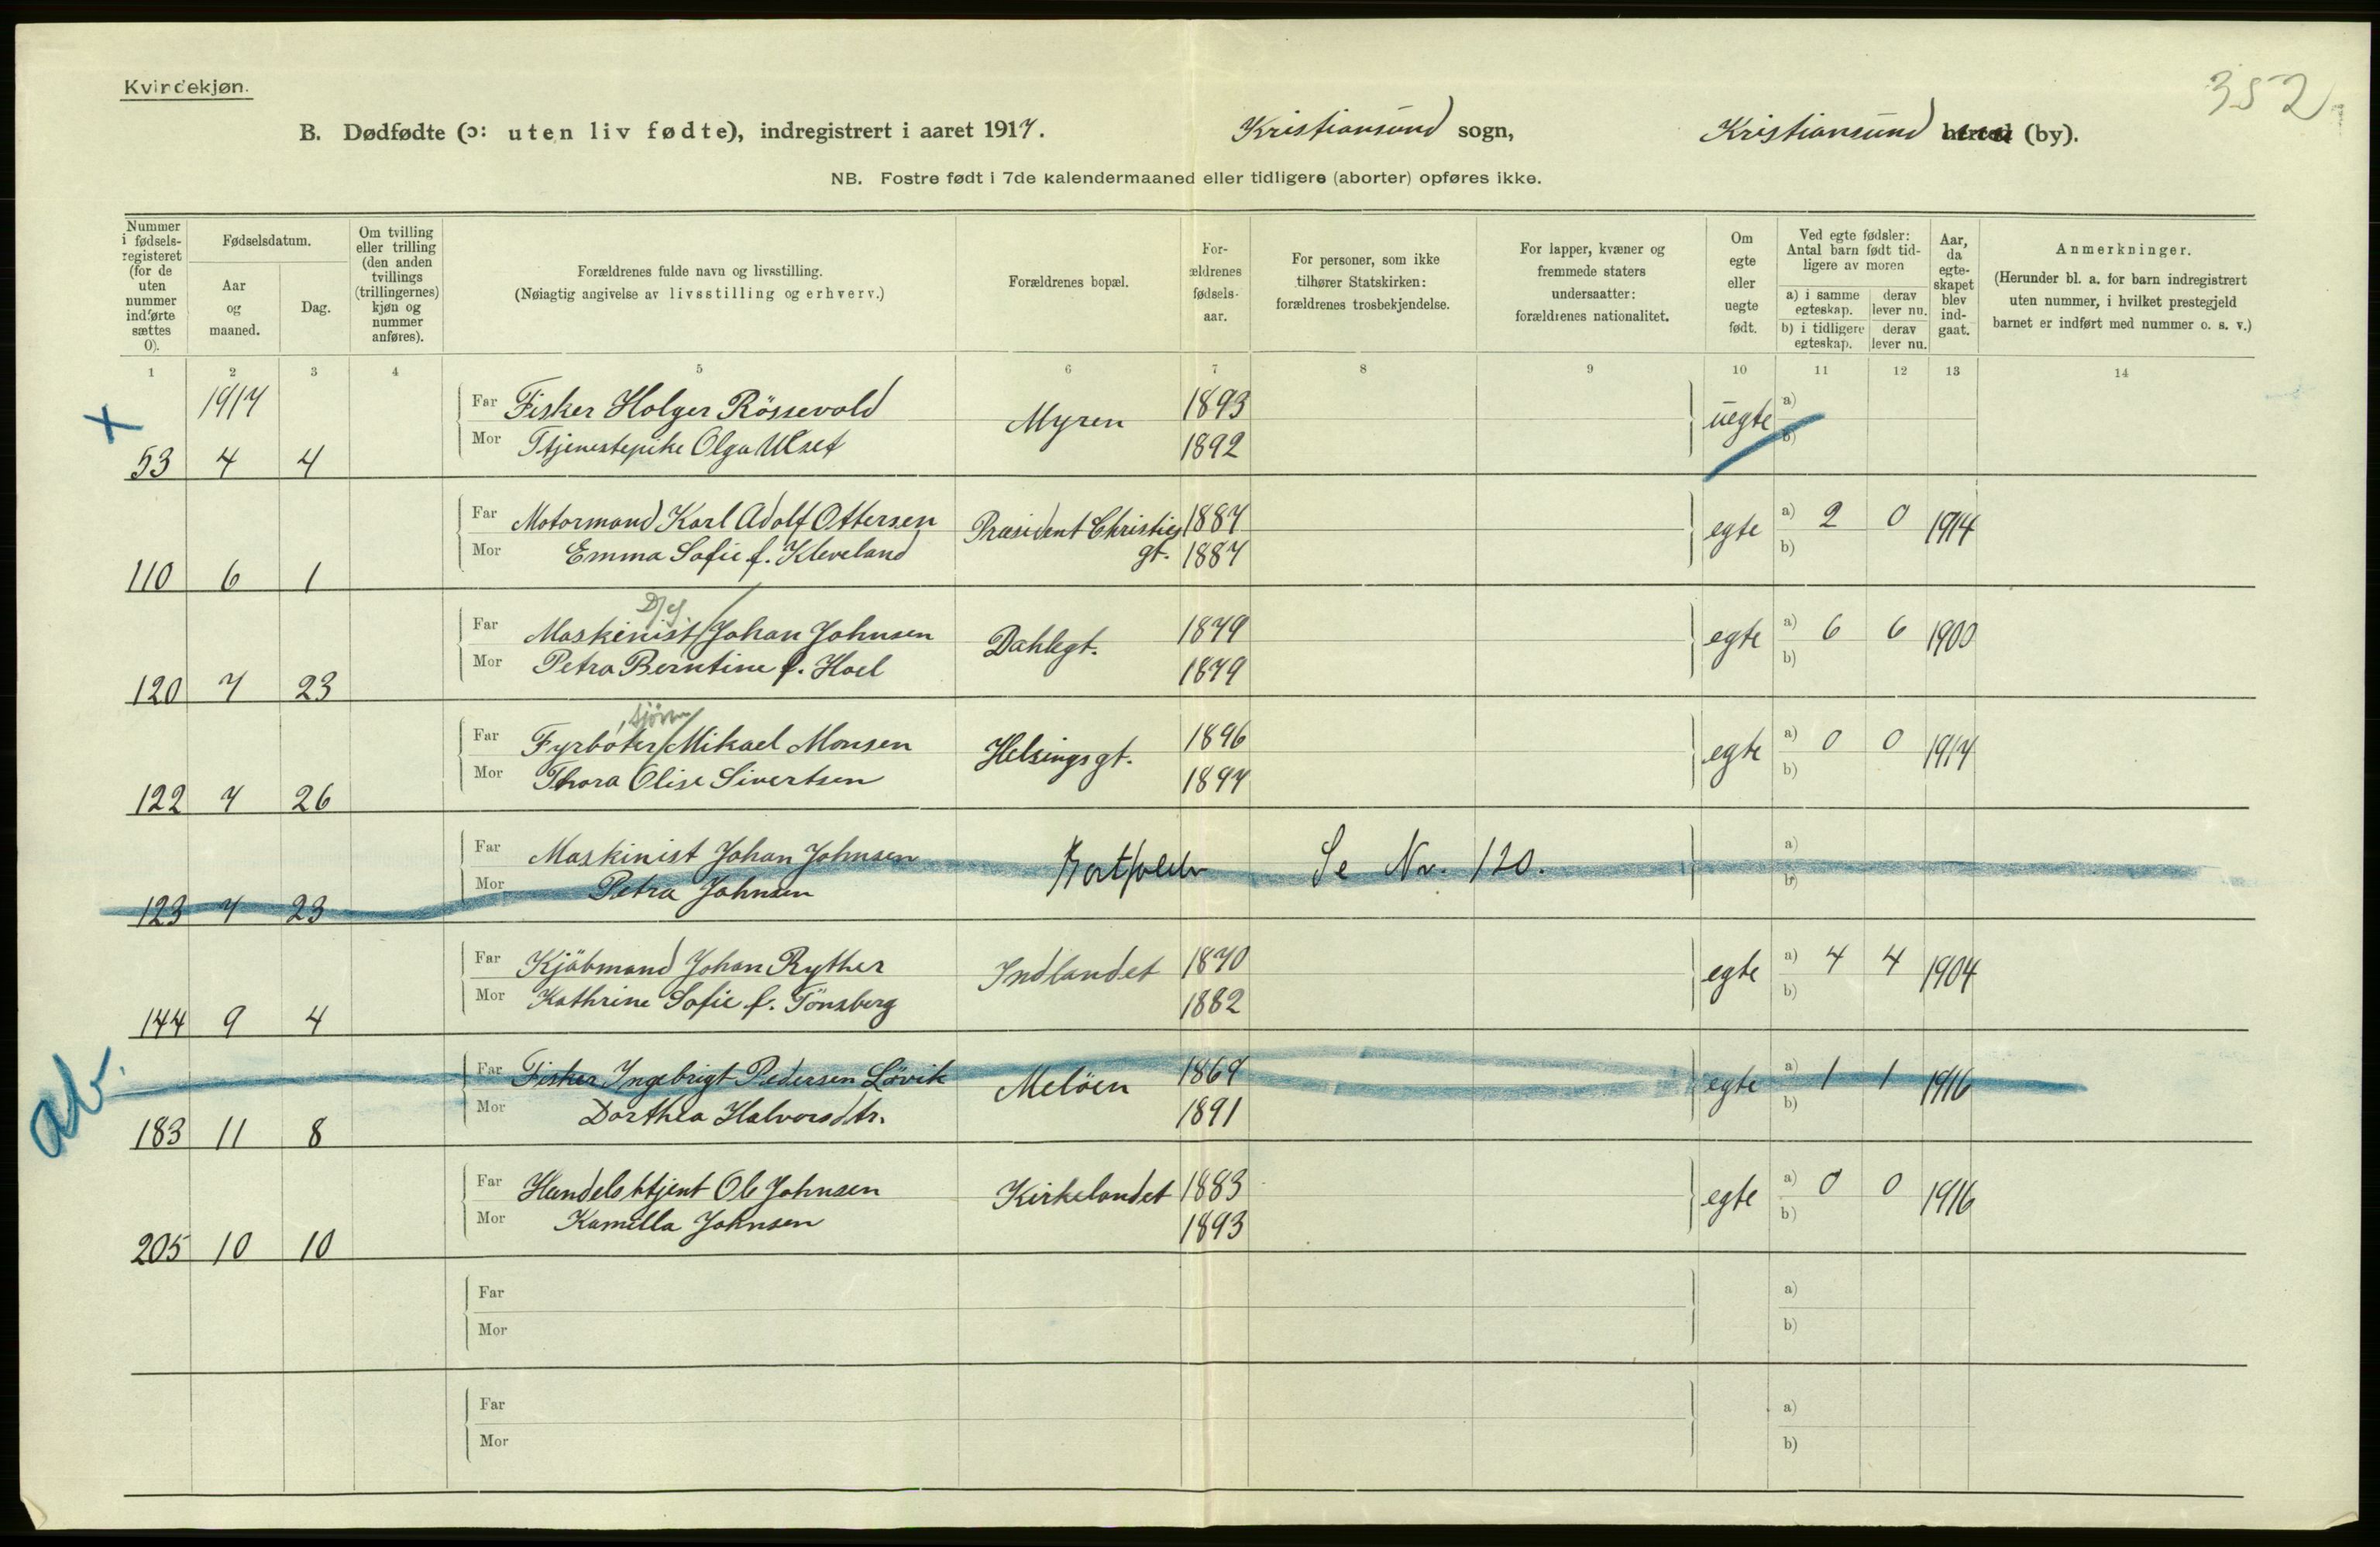 Kvindekjøn.
352
B. Dødfødte (ɔ: uten liv fødte), indregistrert i aaret 1917. Kristiansund sogn, Kristiansund herred (by).
NB. Fostre født i 7de kalendermaaned eller tidligere (aborter) opføres ikke.
Nummer i fødsels-registeret (for de uten nummer indførte sættes 0).
Fødselsdatum.
Aar og maaned.
Dag.
Om tvilling eller trilling (den anden tvillings (trillingernes) kjøn og nummer anføres).
Forældrenes fulde navn og livsstilling.
(Nøiagtig angivelse av livsstilling og erhverv.)
Forældrenes bopæl.
For-ældrenes fødsels-aar.
For personer, som ikke tilhører Statskirken: forældrenes trosbekjendelse.
For lapper, kvæner og fremmede staters undersaatter: forældrenes nationalitet.
Om egte eller uegte født.
Ved egte fødsler: Antal barn født tid-ligere av moren
a) i samme egteskap. derav lever nu.
b) i tidligere egteskap. derav lever nu.
Aar, da egte-skapet blev ind-gaat.
Anmerkninger.
(Herunder bl. a. for barn indregistrert uten nummer, i hvilket prestegjeld barnet er indført med nummer o. s. v.)
1 2 3 4 5 6 7 8 9 10 11 12 13 14
x 1917 Far Fisker Holger Rössevold Myren 1893 uegte a)
53 4 4 Mor Tjenestepike Olga Ulset 1892 b)
Far Motormand Karl Adolf Ottersen Præsident Christies gt. 1887 egte a) 2 0 1914
110 6 1 Mor Emma Sofie f. Kleveland 1887 b)
Far Maskinist D/S. Johan Johnsen Dahlegt. 1879 egte a) 6 6 1900
120 7 23 Mor Petra Berntine f. Hoel 1879 b)
Far Fyrböter, sjöm Mikael Monsen Helsingsgt. 1896 egte a) 0 0 1917
122 7 26 Mor Thora Olise Sivertsen 1897 b)
Far Maskinist Johan Johnsen Bortfalder Se Nr. 120. a)
123 7 23 Mor Petra Johnsen b)
Far Kjöbmand Johan Ryther Indlandet 1870 egte a) 4 4 1904
144 9 4 Mor Kathrine Sofie f. Tönsberg 1882 b)
ab. Far Fisker Ingebrigt Pedersen Lövik Melöen 1867 egte a) 1 1 1916
183 11 8 Mor Dorthea Halvorsdtr. 1891 b)
Far Handelsbtjent Ole Johnsen Kirkelandet 1883 egte a) 0 0 1916
205 10 10 Mor Kamilla Johnsen 1893 b)
Far a)
Mor b)
Far a)
Mor b)